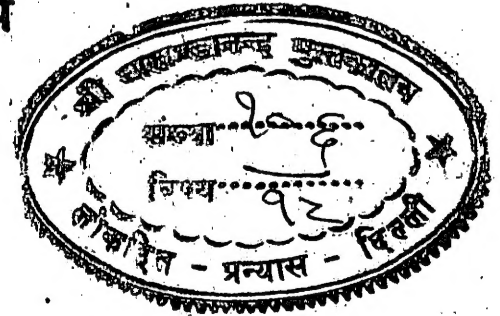 श्री पुस्तकालय
संख्या
विषय १२
लोकहित - प्रन्यास - दिल्ली